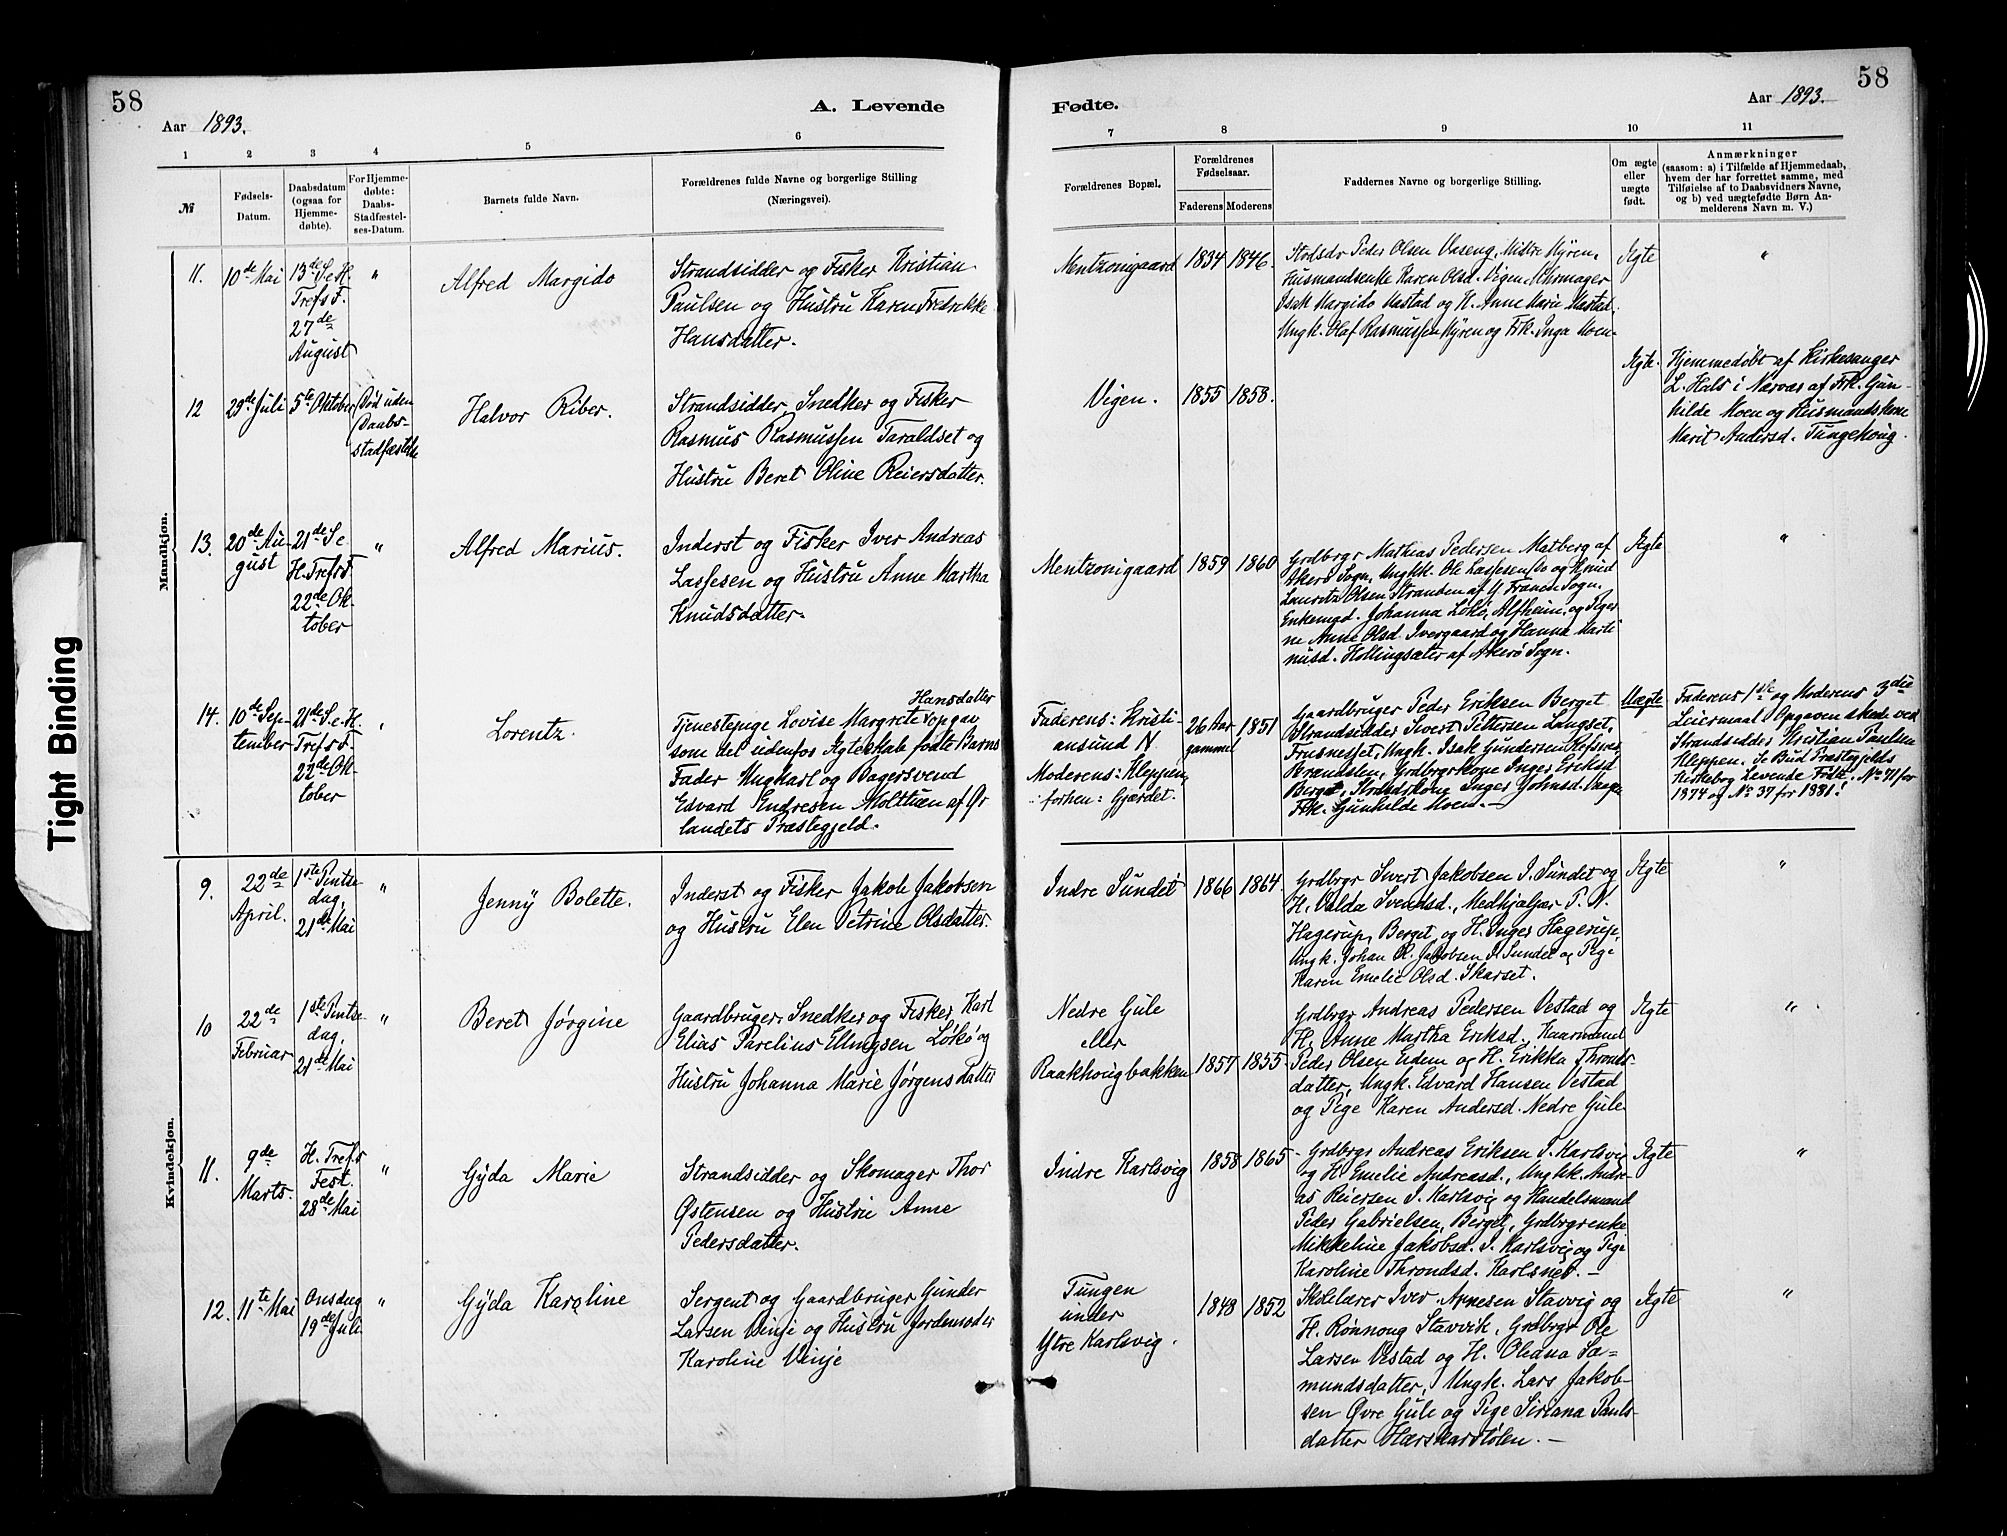 58
Aar 1893.
A. Levende
1 2 3 4 5 6
№
Fødsels-Datum.
Daabsdatum (ogsaa for Hjemme-døbte).
For Hjemme-døbte: Daabs-Stadfæstel-ses-Datum.
Barnets fulde Navn.
Forældrenes fulde Navne og borgerlige Stilling
(Næringsvei).
Mandkjøn.
11. 10de Mai
13de S.e.H.
Tref. F.
27de
August
"
Alfred Margido
Strandsidder og Fisker Kristian
Paulsen og Hustru Karen Fredrikke
Hansdatter.
12 29de Juli 5te Oktober
Død uden
Daabs-
stadfæstelse
Halvor Riber.
Strandsidder, Snedker og Fisker
Rasmus Rasmussen Taraldset og
Hustru Beret Oline Reiersdatter.
13. 20de Au-
gust
21de S.e.
H. Tref. F.
22de Ok-
tober
"
Alfred Marius.
Inderst og Fisker Iver Andreas
Lassesen og Hustru Anne Martha
Knudsdatter.
14. 10de Sep-
tember
21de S.e.H.
Tref. F.
22de Ok-
tober
"
Lorentz.
Hansdatter
Tjenestepige Lovise Margrete opgav
som det udenfor Ægteskab fødte Barns
Fader Ungkarl og Bagersvend
Edvard Endresen Molttuen af Ør
landets Præstegjeld.
Kvindekjøn.
9. 22de
April.
1ste Pintse-
dag,
21de Mai
"
Jenny Bolette.
Inderst og Fisker Jakob Jakobsen
og Hustru Elen Petrine Olsdatter.
10 22de
Februar
1ste Pintse-
dag,
21de Mai
"
Beret Jørgine
Gaardbruger, Snedker og Fisker Karl
Elias Parelius Ellingsen Løkø og
Hustru Johanna Marie Jørgensdatter
11. 9de
Marts.
H. Tref.s
Fest.
28de Mai
"
Gyda Marie
Strandsidder og Skomager Thor
Østensen og Hustru Anne
Pedersdatter.
12. 11te Mai
Onsdag
19de Juli
"
Gyda Karoline
Sergent og Gaardbruger Gunder
Larsen Vinje og Hustru Jordemoder
Karoline Vinje
Fødte.
Aar 1893.
58
7 8 9 10 11
Forældrenes Bopæl.
Forældrenes Fødselsaar.
Faderens Moderens
Faddernes Navne og borgerlige Stilling.
Om ægte eller uægte født.
Anmærkninger
(saasom: a) i Tilfælde af Hjemmedaab,
hvem der har forrettet samme, med
Tilføielse af to Daabsvidners Navne,
og b) ved uægtefødte Børn An-
melderens Navn m. V.)
Mentzonigaard 1834 1846.
Strdsdr Peder Olsen Vaseng, Midtre Myren,
Husmandsenke Karen Olsd. Vigen, Uhrmager
Isak Margido Mastad og H. Anne Marie Mastad,
Ungk. Olaf Rasmussen Myren og Frk. Inga Moen-
Ægte
"
Vigen. 1855 1858.
Ægte.
Hjemmedøbt af Kirkesanger
L. Hals i Nærvær af Frk. Gun-
hilde Moen og Husmandskone
Marit Andersd. Tungehoug.
Mentzonigaard 1859 1860
Grdbrgr Mathias Pedersen Malberg af
Akerø Sogn, Ungkk. Ole Lassesen Do og Knud
Lauritz Olsen Stranden af Y. Frænen Sogn.
Enkemad. Johanna Løkø, Alfheim, og Piger
ne Anne Olsd. Ivergaard og Hanna Marti
nusd. Hollingsæter af Akerø Sogn.
Ægte
"
Faderens: Kristi-
ansund N.
Moderens: Kleppen,
forhen: Gjærdet.
26 Aar
gammel
1851
Gaardbruger Peder Eriksen Berget
Strandsidder Sivert Pettersen Langset,
Frusnesset, Ungk. Isak Gundersen Refsnes,
Brændslen, Grdbrgrkone Inger Eriksd
Berget, Strdsdrkone Inger Johnsd. Vaage
Frk. Gunhilde Moen. —
Uægte
Faderens 1ste og Moderens 3die
Leiermaal. Opgaven skede ved
Strandsidder Kristian Paulsen
Kleppen. Se Bud Præstegjelds
Kirkebog Levende Fødte. No 71 for
1874 og No 37 for 1881!
Indre Sundet 1866 1864
Grdbrgr Sivert Jakobsen I. Sundet og
H. Valda Svendsd., Medhjælper P. N.
Hagerup, Berget, og H. Inger Hagerup,
Ungk. Johan Ol. Jakobsen I. Sundet og Pige
Karen Emelie Olsd. Skarset.
Ægte
"
Nedre Gule
eller
Raakhougbakken 1857 1855
Grdbrgr Andreas Pedersen Vestad og
H. Anne Martha Eriksd. Kaarmand
Peder Olsen Eidem og H. Erikka Thronds-
datter, Ungk. Edvard Hansen Vestad
og Pige Karen Andersd. Nedre Gule
Ægte
"
Indre Karlsvig 1858 1865
Grdbrgr Andreas Eriksen I. Karlsvig
og H. Emelie Andreasd., Ungkk. Andr-
as Reiersen I. Karlsvig og Handelsmand
Peder Gabrielsen, Berget, Grdbrgrenke
Mikkeline Jakobsd. I. Karlsvig og Pige
Karoline Throndsd. Karlsnes. —
Ægte
"
Tungen
under
Ytre Karlsvig.
1848 1852
Skolelærer Iver Arnesen Stavvig og
H. Rønnoug Stavvik, Grdbrgr Ole
Larsen Vestad og H. Oleana Sa-
mundsdatter, Ungk. Lars Jakob-
sen Øvre Gule og Pige Siriana Pauls-
datter Hærskardtølen. —
Ægte
"
Tight Binding